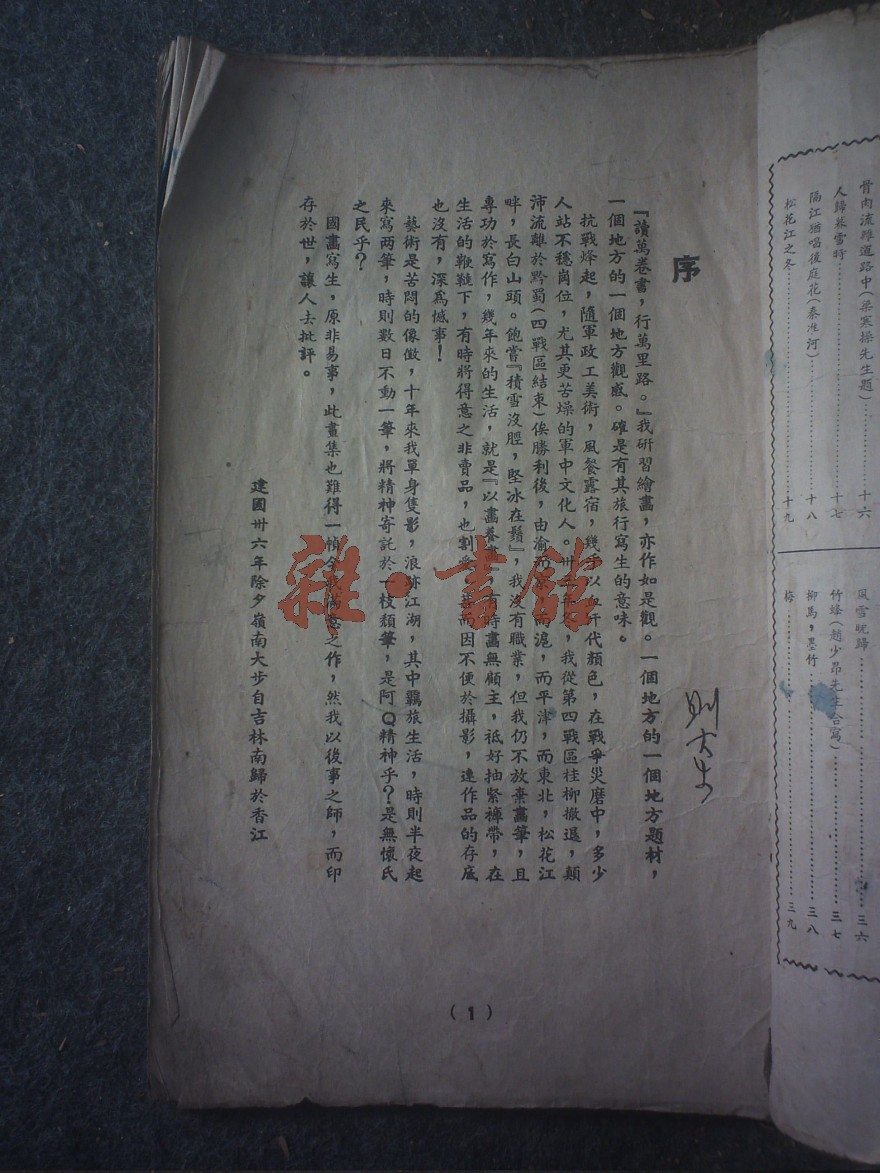 骨肉流離道路中(梁寒操先生題)………十六
人歸暮雪時………十七
隔江猶唱後庭花(秦淮河)………十八
松花江之冬………十九
風雪晚歸………三六
竹蜂(趙少昂先生合寫)………三七
柳馬,墨竹………三八
梅………三九
序
『讀萬卷書,行萬里路。』我研習繪畫,亦作如是觀。一個地方的一個地方題材,
一個地方的一個地方觀感。確是有其旅行寫生的意味。
抗戰烽起,隨軍政工美術,風餐露宿,幾乎以血汗代顏色,在戰爭災磨中,多少
人站不穩崗位,尤其更苦燥的軍中文化人。卅三年冬,我從第四戰區桂柳撤退,顛
沛流離於黔蜀(四戰區結束)俟勝利後,由渝而 而滬,而平津,而東北,松花江
畔,長白山頭。飽嘗『積雪沒脛,堅冰在鬚』,我沒有職業,但我仍不放棄畫筆,且
專功於寫作,幾年來的生活,就是『以畫養畫』,有時畫無顧主,祗好抽緊褲帶,在
生活的鞭韃下,有時將得意之非賣品,也割愛,甚而因不便於攝影,連作品的存底
也沒有,深為憾事!
藝術是苦悶的像徵,十年來我單身隻影,浪跡江湖,其中羈旅生活,時則半夜起
來寫兩筆,時則數日不動一筆,將精神寄託於一枝頹筆,是阿Q精神乎?是無懷氏
之民乎?
國畫寫生,原非易事,此畫集也難得一幀令我滿意之作,然我以後事之師,而印
存於世,讓人去批評。
建國卅六年除夕嶺南大步自吉林南歸於香江
(1)
雜·書館